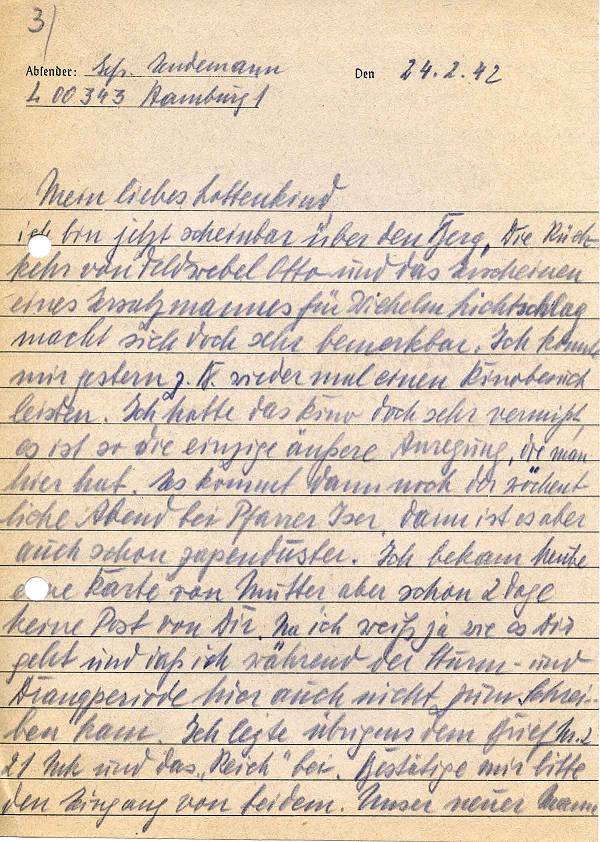 3)
Absender: Gefr. Lindemann Den 24.2.42
L 00343 Hamburg 1
Mein liebes Lottenkind,
ich bin jetzt scheinbar über den Berg. Die Rück-
kehr von Feldwebel Otto und das Erscheinen
eines Ersatzmannes für Wilhelm Lichtschlag
macht sich doch sehr bemerkbar. Ich konnte
mir gestern z. B. wieder mal einen Kinobesuch
leisten. Ich hatte das Kino doch sehr vermißt,
es ist so die einzige äußere Anregung, die man
hier hat. Es kommt dann noch der wöchent-
liche Abend bei Pfarrer Iser, dann ist es aber
auch schon zapenduster. Ich bekam heute
eine Karte von Mutter aber schon 2 Tage
keine Post von Dir. Na ich weiß ja wie es Dir
geht und daß ich während der Sturm- und
Drangperiode hier auch nicht zum Schrei-
ben kam. Ich legte übrigens dem Brief Nr. 2
21 Mk und das „Reich" bei. Bestätige mir bitte
den Eingang von beidem. Unser neuer Mann